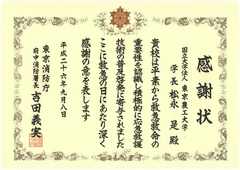 感謝状
国立大学法人 東京農工大学
学長 松永 是 殿
貴校は平素から救急救命の
重要性を認識し積極的に応急救護
技術の普及啓発に寄与されました
ここに救急の日にあたり深く
感謝の意を表します
平成二十六年九月八日
東京消防庁
府中消防署長
吉田義実